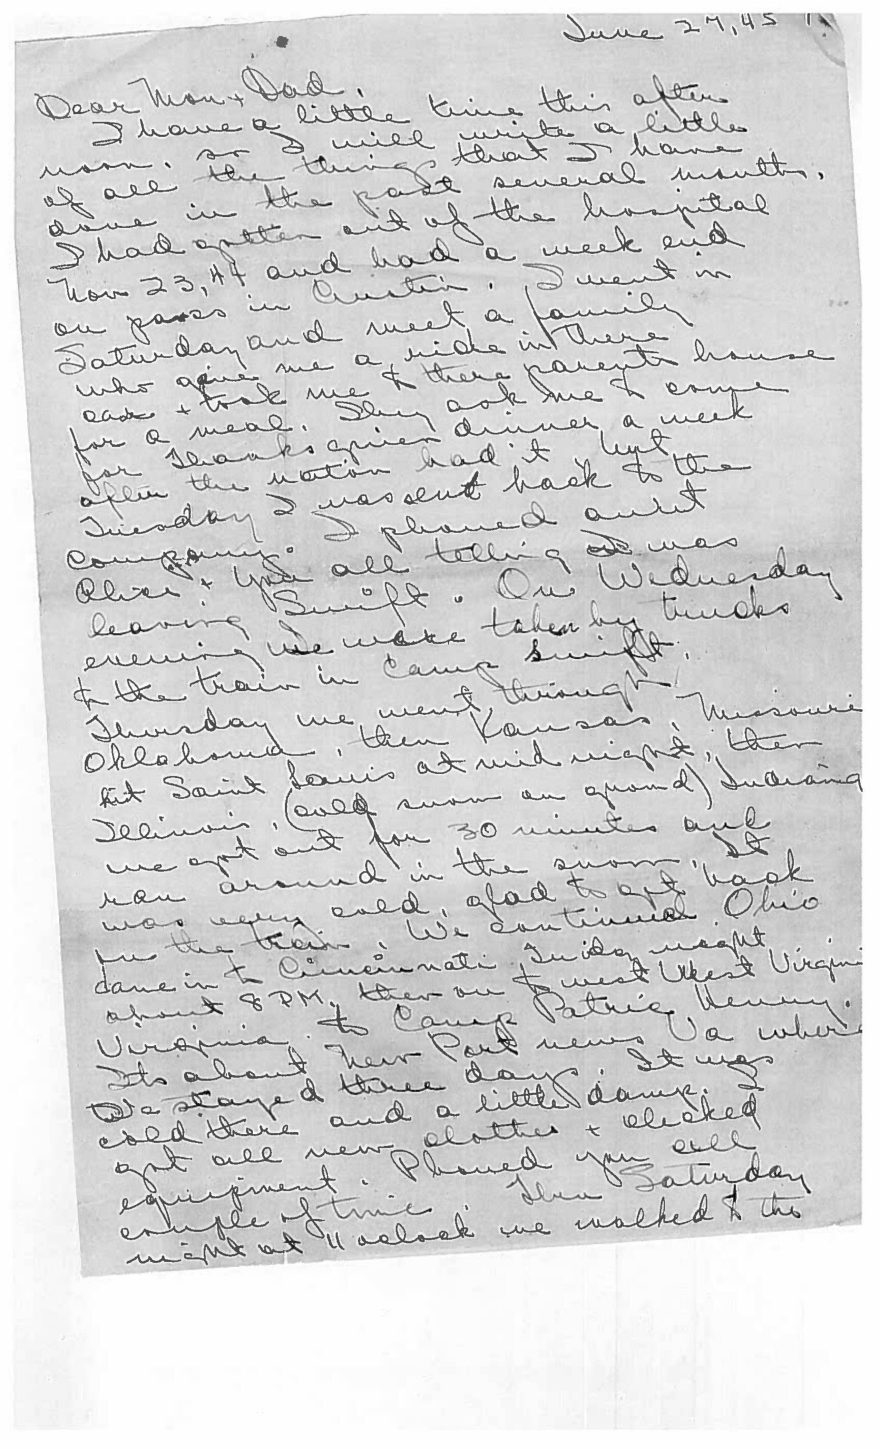 June 27, 45
Dear Mom + Dad,
I have a little time this after
noon, so I will write a little
of all the things that I have
done in the past several months.
I had gotten out of the hospital
Nov 23, 44 and had a week end
on pass in Austin. I went in
Saturday and meet a family
who give me a ride in there
car + took me to there parents house
for a meal. They ask me to come
for Thanksgiven dinner a week
after the nation had it, but
Tuesday I was sent back to the
company. I phoned aunt
Alice + you all telling I was
leaving Swift. On Wednesday
evening We were taken by trucks
to the train in Camp Swift.
Thursday we went through
Oklahoma, then Kansas, Missouri
hit Saint Louis at mid night, then
Illinois, (cold snow on ground) Indiana
we got out for 30 minutes and
ran around in the snow. It
was very cold, glad to get back
in the train. We continued Ohio
came in to Cincinnati Friday night
about 8 PM, then on to west West Virginia
Virginia to Camp Patric Henry.
Its about New Port news Va where
We stayed three days. It was
cold there and a little damp. I
got all new clothes + checked
equipment. Phoned you all
couple of times. Then Saturday
night at 11 oclock we walked to the